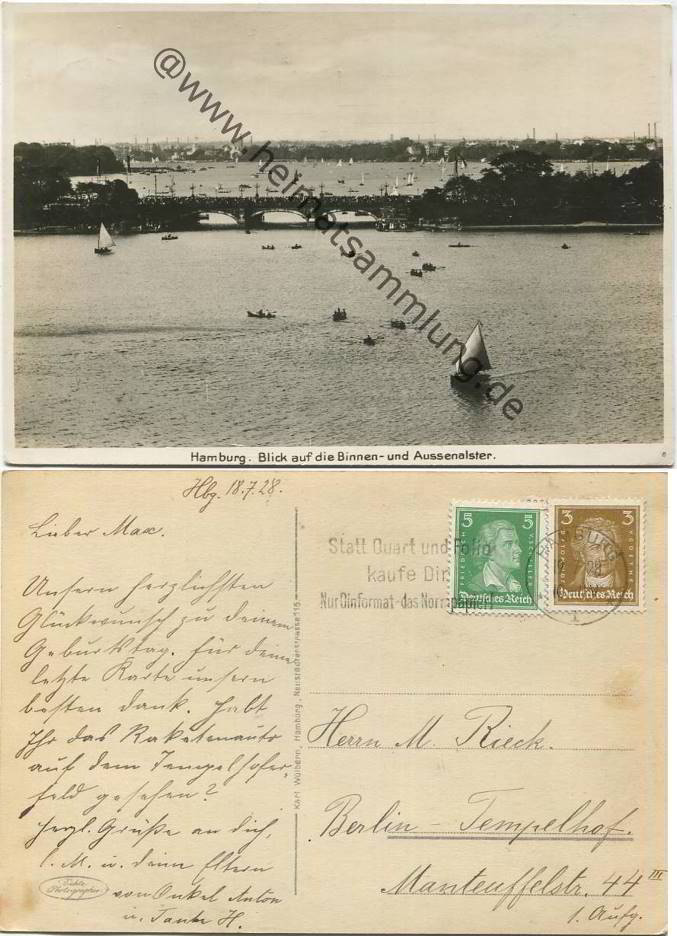 @www.heimatsammlung.de
Hamburg. Blick auf die Binnen- und Aussenalster.
Hbg. 18.7.28.
Lieber Max.
Unsern herzlichsten
Glückwunsch zu deinem
Geburtstag. Für deine
letzte Karte unsern
besten Dank. Habt
Ihr das Raketenauto
auf dem Tempelhofer-
feld gesehen?
Herzl. Grüße an dich,
l. M. u. deine Eltern
von Onkel Anton
u. Tante H.
Echte
Photographie
Karl Wülbern, Hamburg,
Statt Quart und Folio
kaufe Din
Nur Dinformat-das Normpapier!
5 5
FRIEDRICH SCHILLER
Deutsches Reich
3 3
GOETHE
Deutsches Reich
HAMBURG
1
Herrn M. Rieck.
Berlin - Tempelhof.
Manteuffelstr. 44 III
1. Aufg.